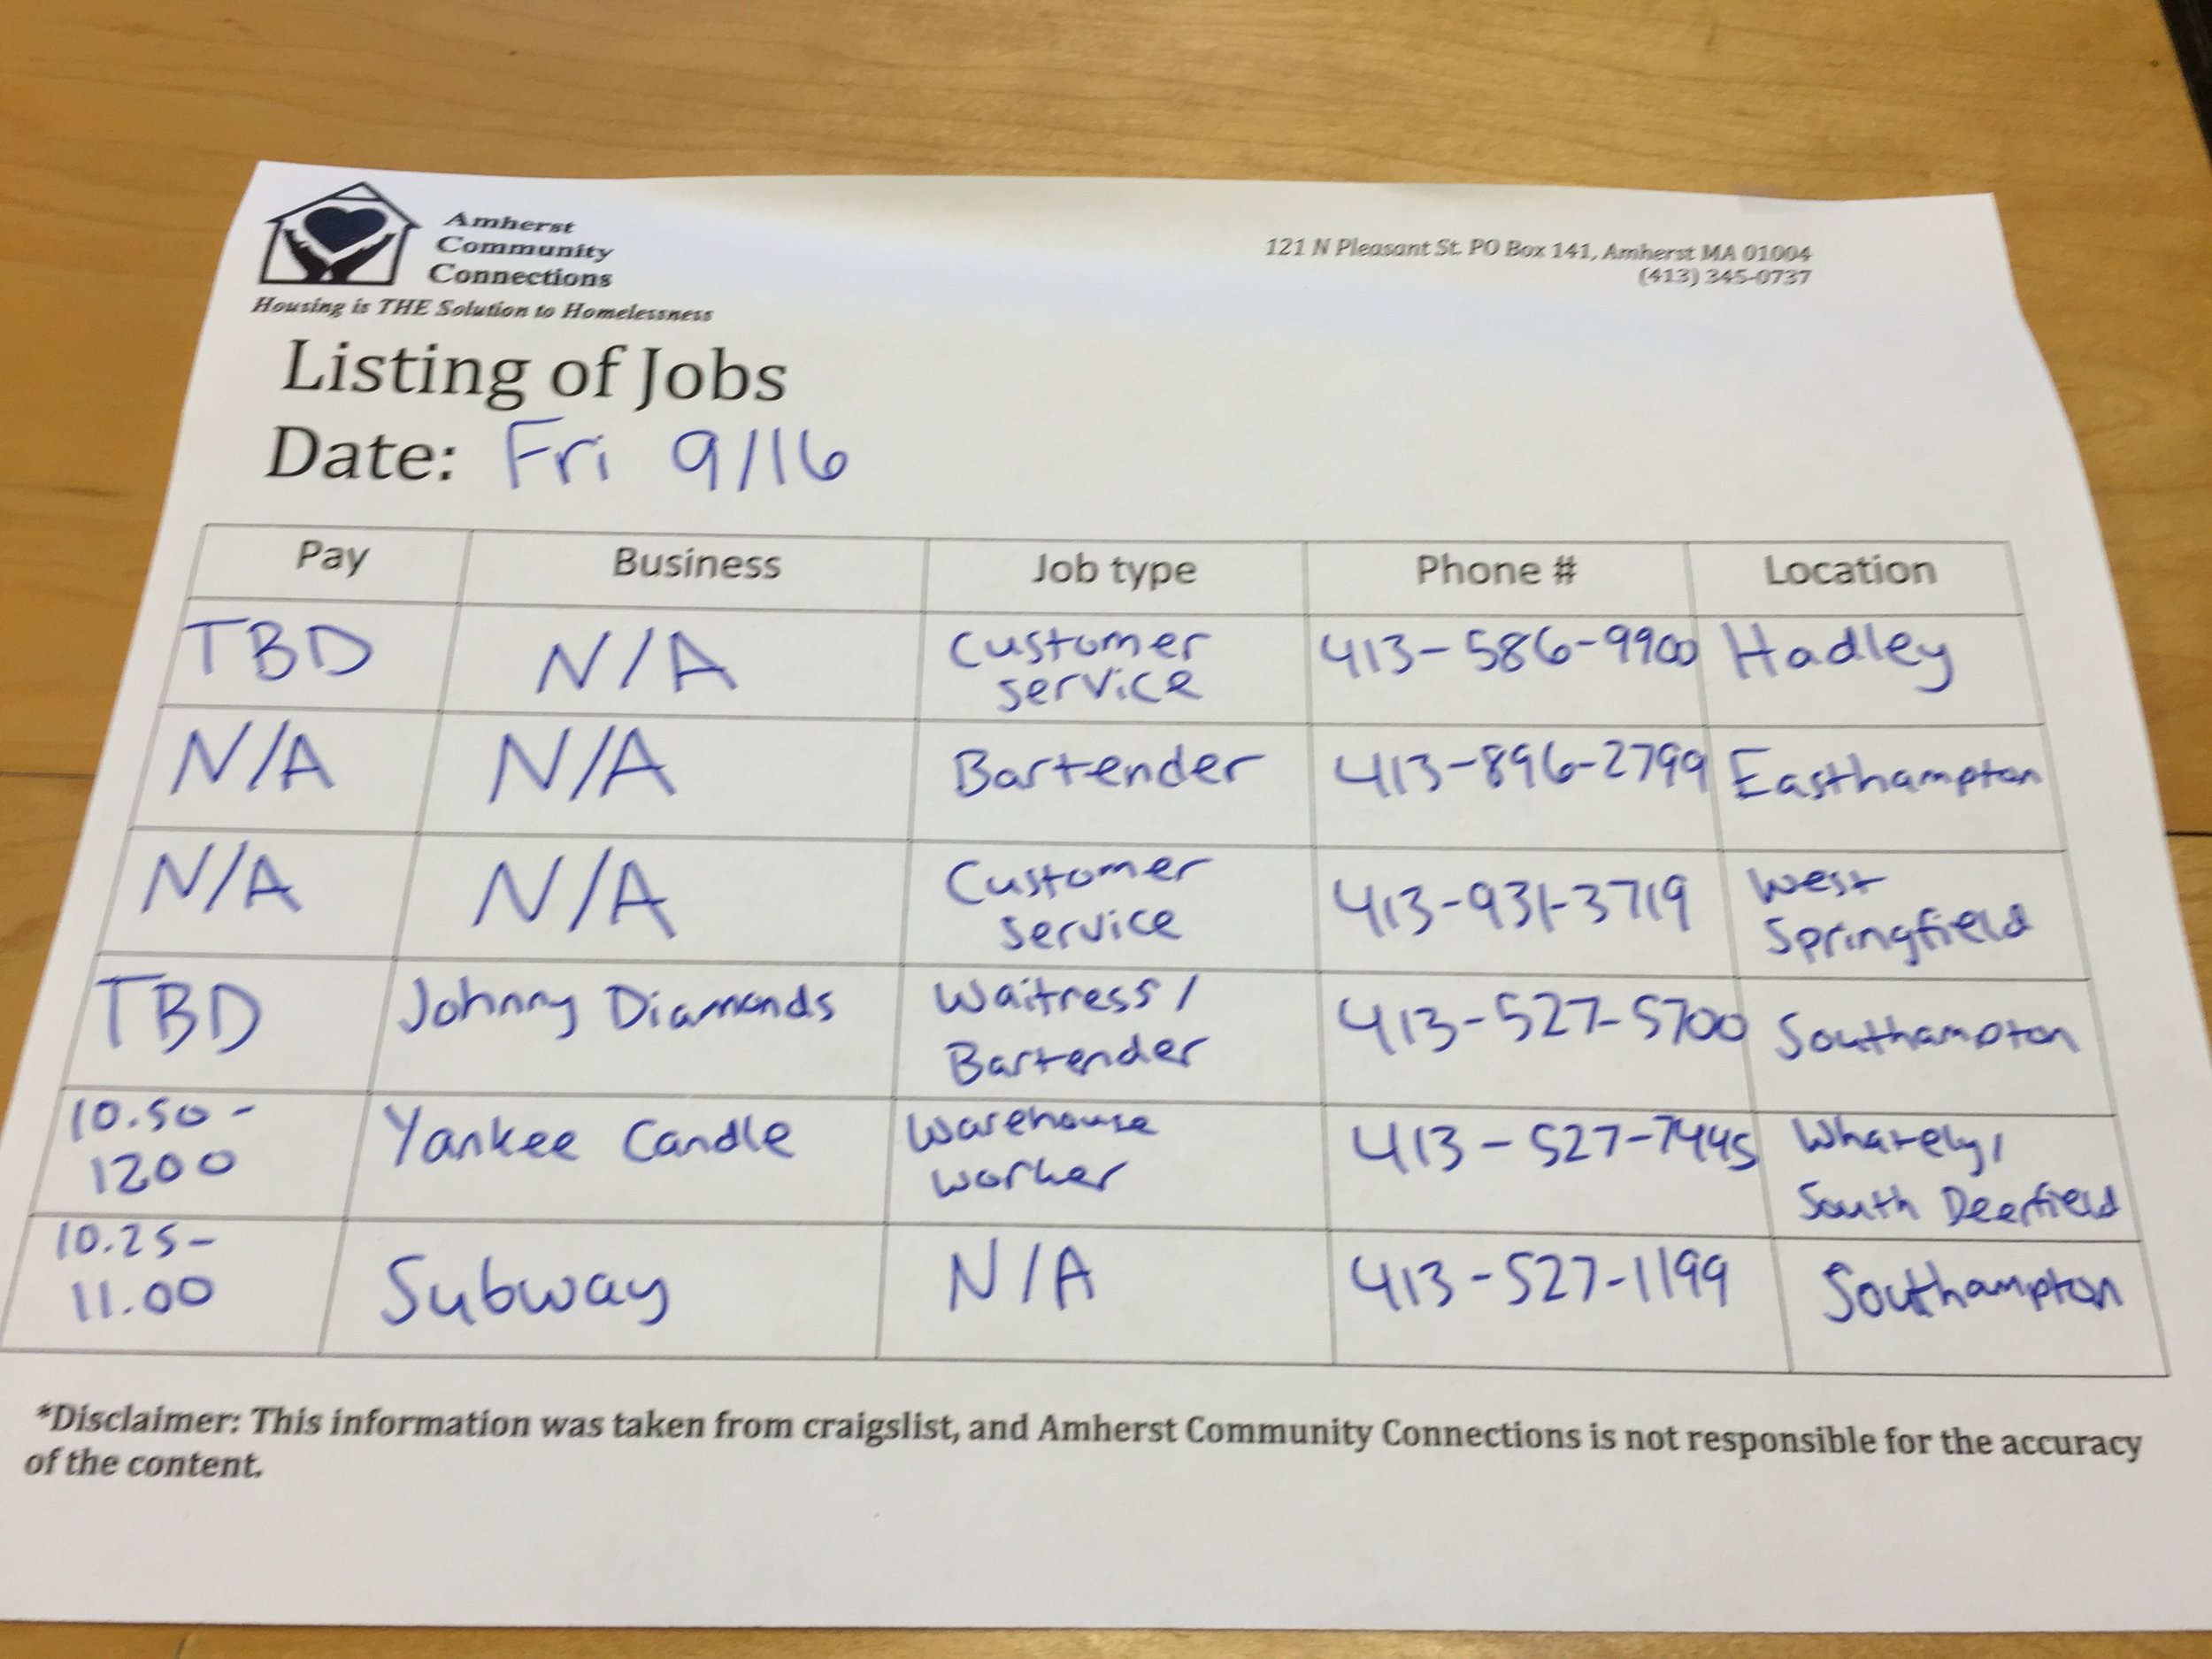 Amherst
Community
Connections
Housing is THE Solution to Homelessness
121 N Pleasant St. PO Box 141, Amherst MA 01004
(413) 345-0737
Listing of Jobs
Date: Fri 9/16
Pay Business Job type Phone # Location
TBD N/A Customer service 413-586-9900 Hadley
N/A N/A Bartender 413-896-2799 Easthampton
N/A N/A Customer service 413-931-3719 West Springfield
TBD Johnny Diamonds Waitress / Bartender 413-527-5700 Southampton
10.50- 1200 Yankee Candle Warehouse worker 413-527-7445 Whately/ South Deerfield
10.25- 11.00 Subway N/A 413-527-1199 Southampton
*Disclaimer: This information was taken from craigslist, and Amherst Community Connections is not responsible for the accuracy
of the content.